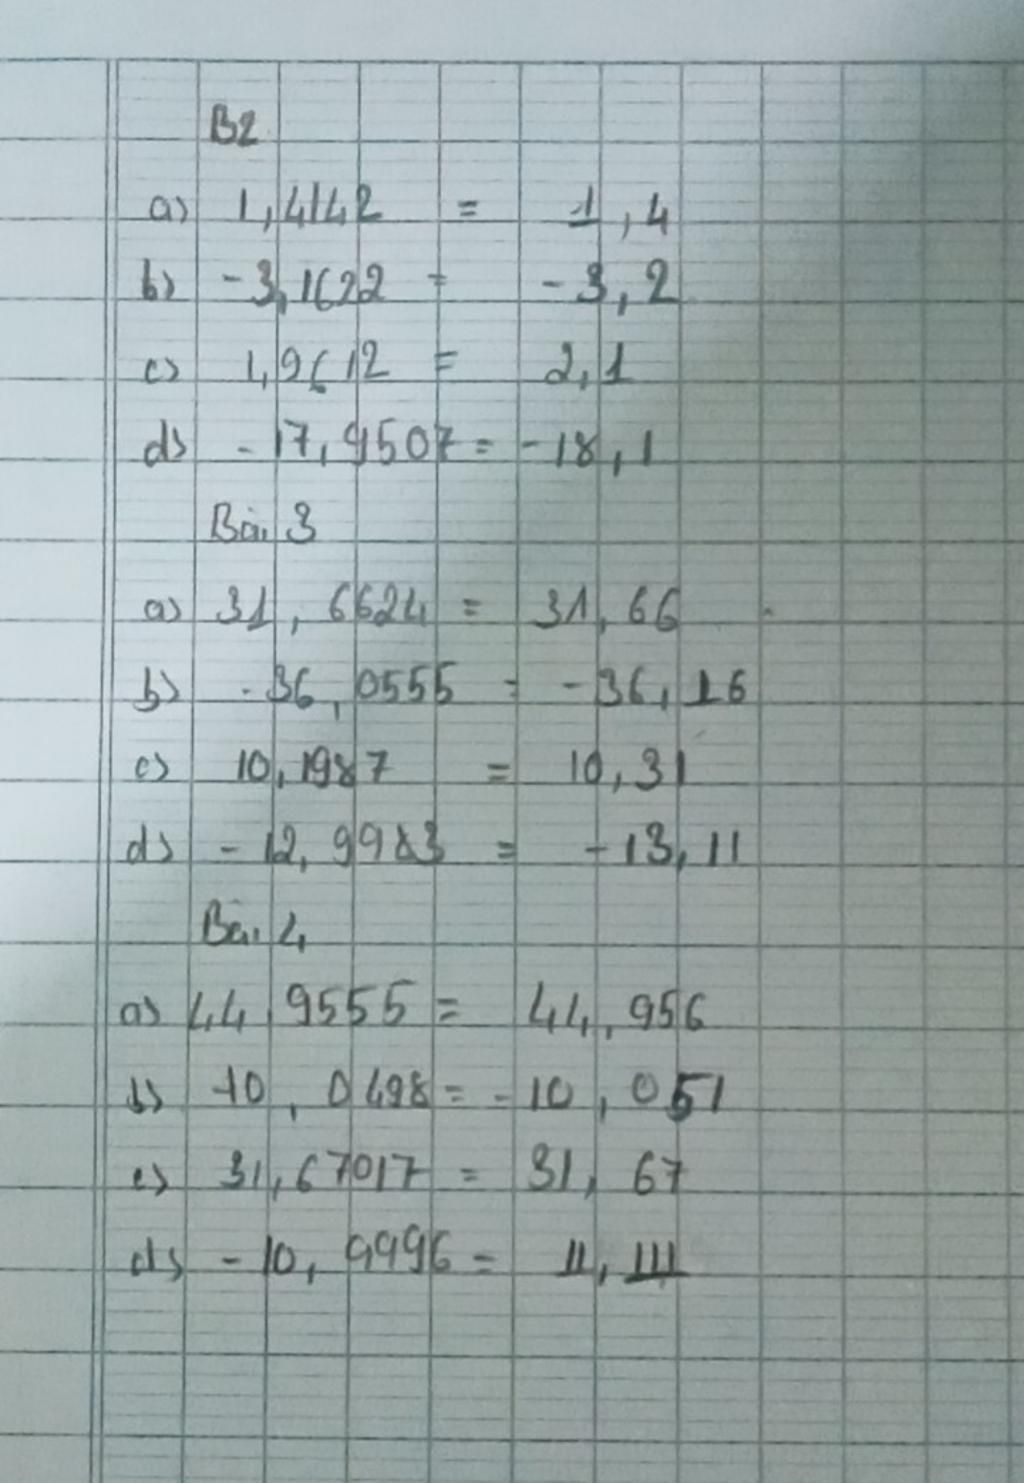 B2
a) 1,4142 = 1,4
b) -3,1622 = -3,2
c) 1,9612 = 2,1
d) -17,9507 = -18,1
Bài 3
a) 31,6624 = 31,66
b) -36,0555 = -36,16
c) 10,1987 = 10,31
d) -12,9983 = -13,11
Bài 4
a) 44,9555 = 44,956
b) -10,0498 = -10,051
c) 31,67017 = 31,67
d) -10,9996 = 11,111